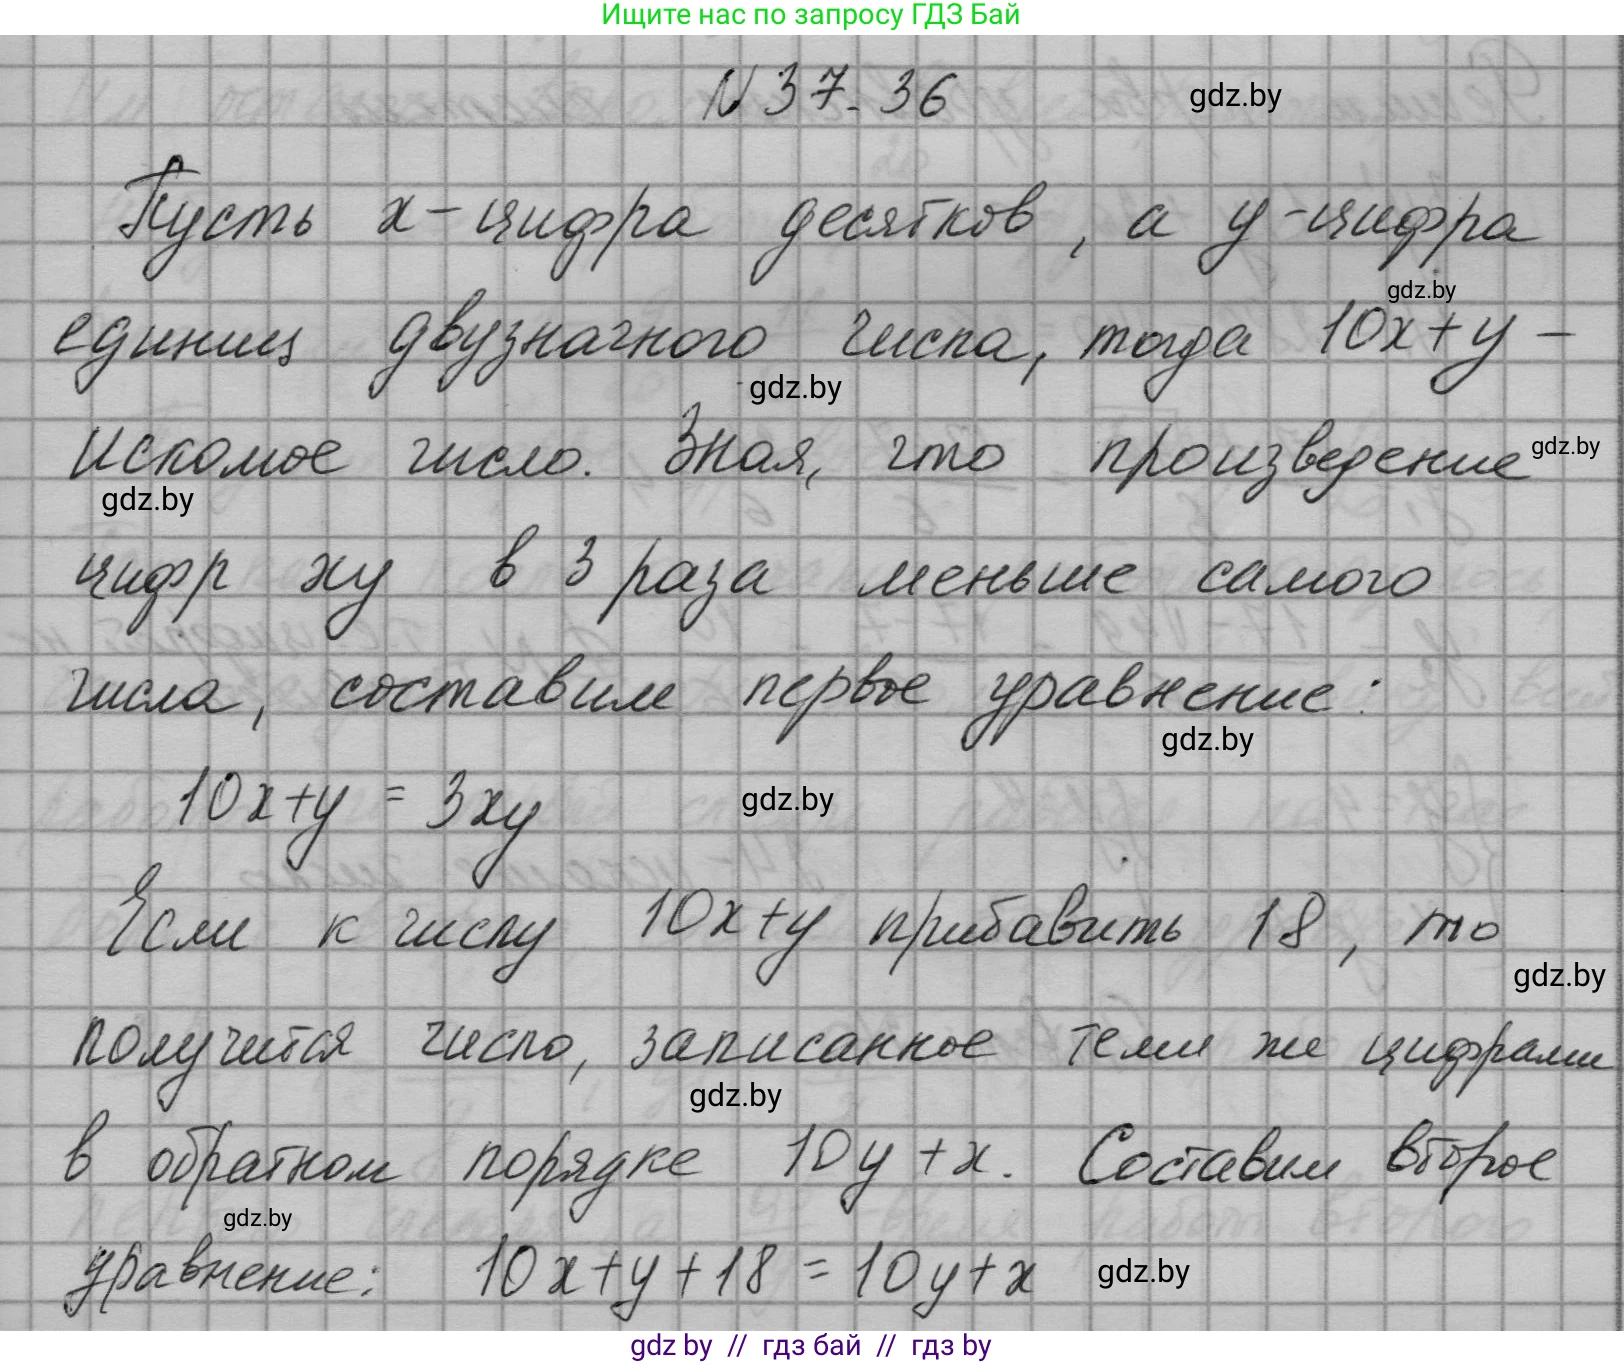 Ищите нас по запросу ГДЗ Бай
N 37.36 gdz.by
Пусть x-цифра десятков, а y-цифра
gdz.by
единиц двузначного числа, тогда 10x+y –
gdz.by
искомое число. Зная, что произведение gdz.by
gdz.by
цифр xy в 3 раза меньше самого
числа, составим первое уравнение:
gdz.by
10x+y = 3xy gdz.by
Если к числу 10x+y прибавить 18, то
gdz.by
получится число, записанное теми же цифрами
gdz.by
в обратном порядке 10y+x. Составим второе
gdz.by
уравнение: 10x+y+18=10y+x gdz.by
gdz by // гдз бай // гдз by